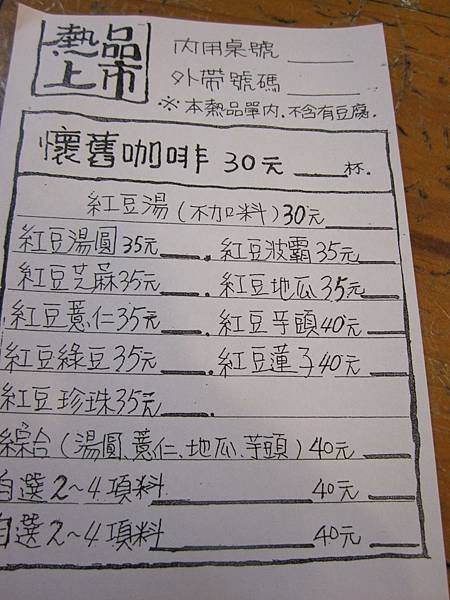 熱品
上市
內用桌號
外帶號碼
※本熱品單內.不含有豆腐.
懷舊咖啡 30元 杯.
紅豆湯(不加料)30元
紅豆湯圓35元 . 紅豆波霸35元
紅豆芝麻35元 . 紅豆地瓜35元
紅豆薏仁35元 . 紅豆芋頭40元
紅豆綠豆35元 . 紅豆蓮子40元
紅豆珍珠35元 .
綜合(湯圓、薏仁、地瓜、芋頭)40元
自選2~4項料 40元
自選2~4項料 40元